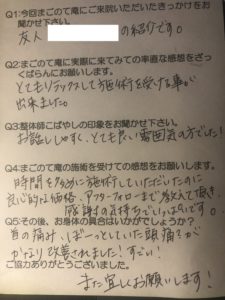 Q1:今回まごのて庵にご来院いただいたきっかけをお
聞かせ下さい。
友人
の紹介です。
Q2:まごのて庵に実際に来てみての率直な感想をざっ
くばらんにお願いします。
とてもリラックスして施術を受ける事が
出来ました。
Q3:整体師こばやしの印象をお聞かせ下さい。
お話ししやすく、とても良い雰囲気の方でした!
Q4:まごのて庵の施術を受けての感想をお願いします。
時間を多めに施術していただいたのに
良心的な価格、アフターフォローまで教えて頂き、
感謝の気持ちでいっぱいです。
Q5:その後、お身体の具合はいかがでしょうか?
首の痛み、ぼーっとしていた頭痛もが
かなり改善されました!すごい!
ご協力ありがとうございました。
また宜しくお願いします。